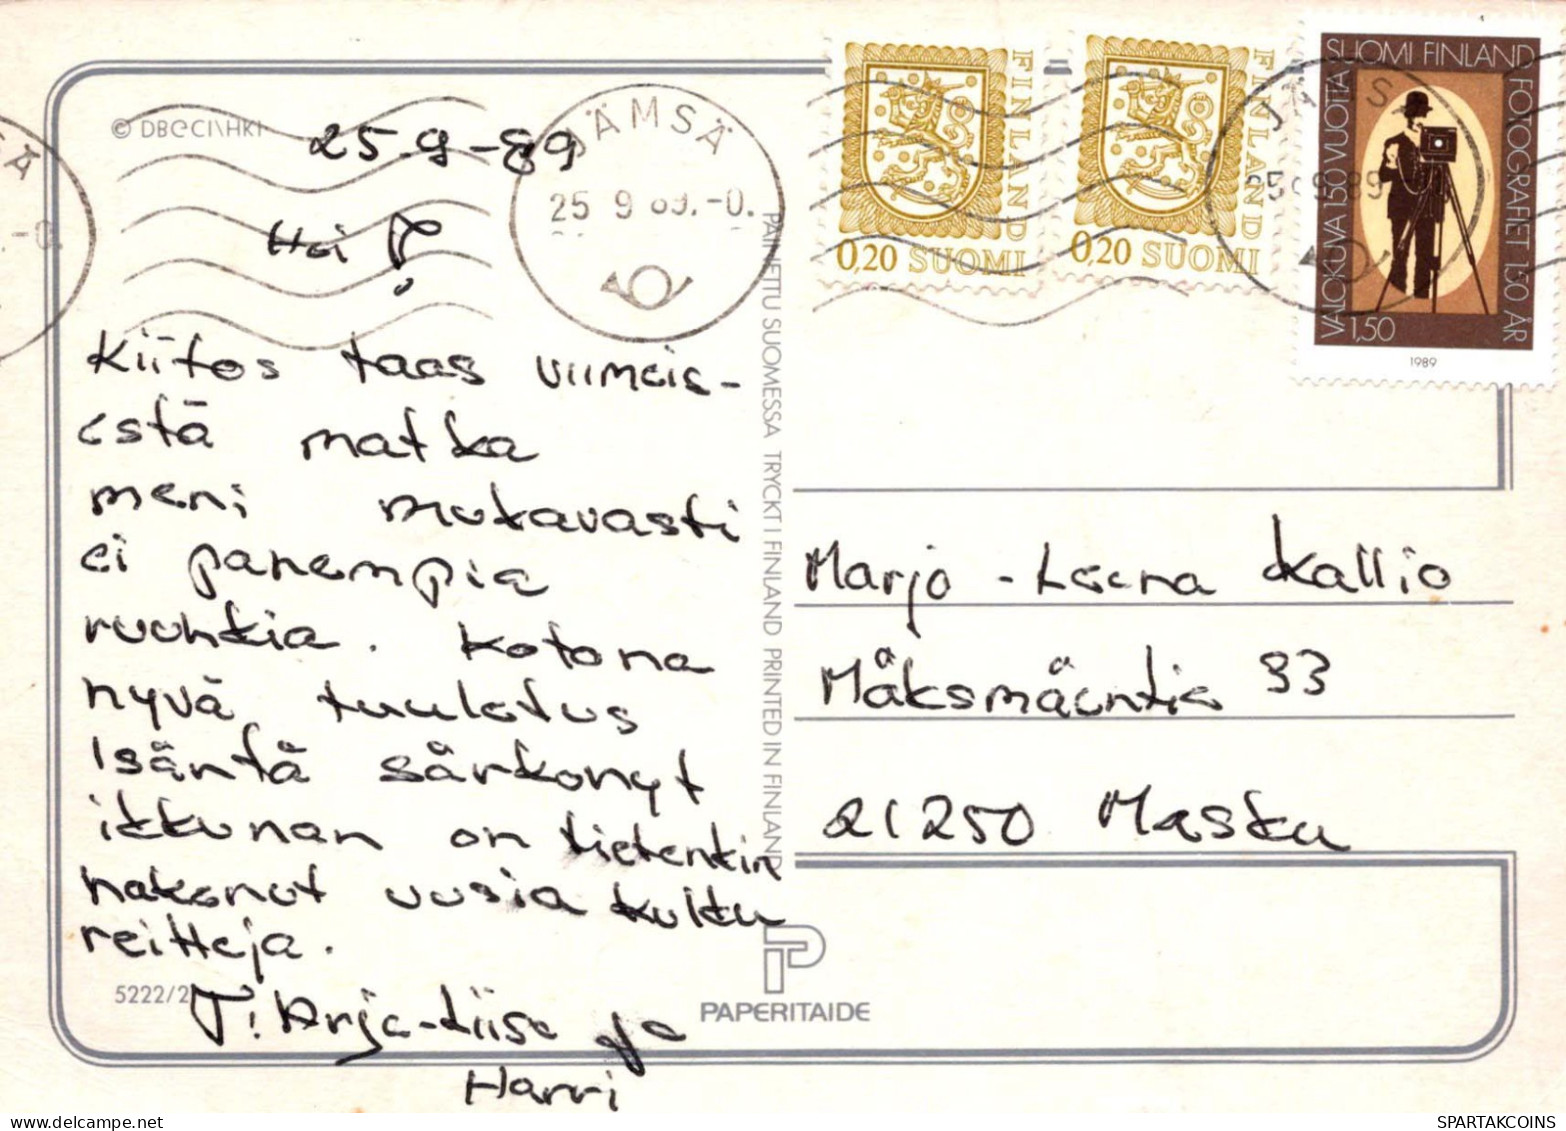 © DBCC\HKI
25.9-89
Hei
Kiitos taas viimeis-
estä matka
meni mukavasti
ei parempia
ruuhkia. Kotona
hyvä tuuletus
Isäntä särkenyt
ikkunan on tietenkin
hakenut uusia kukku
reitteja.
T! Arja-Liisa ja
Harri
5222/2
JÄMSÄ
25 9 89.-0.
PAINETTU SUOMESSA TRYCKT I FINLAND PRINTED IN FINLAND
PAPERITAIDE
FINLAND
0,20 SUOMI
FINLAND
0,20 SUOMI
SUOMI FINLAND
VALOKUVA 150 VUOTTA
FOTOGRAFIET 150 ÅR
1,50
1989
Marjo-Leena Kallio
Måksmäentie 33
21250 Masku
SPARTAKCOINS